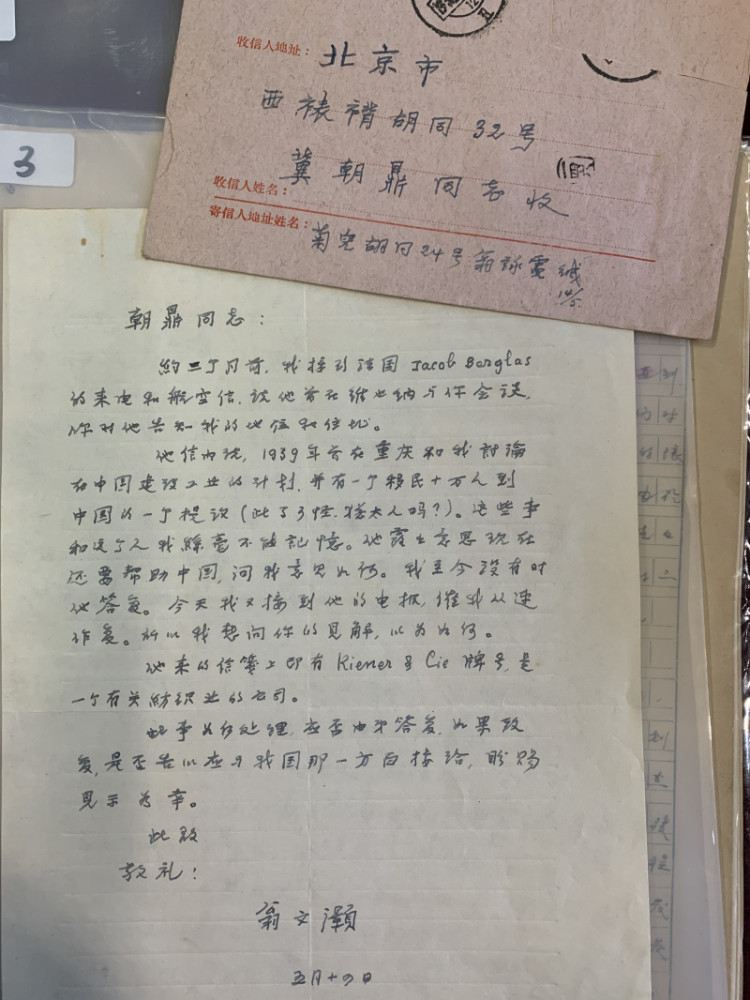 3
收信人地址：北京市
西裱褙胡同32号
收信人姓名：冀朝鼎同志收
寄信人地址姓名：菊儿胡同24号翁詠霓缄
14/5
朝鼎同志：
約二个月前，我接到法国 Jacob Berglas
的来电和航空信，说他曾在維也纳与你会谈，
你对他告知我的地位和住址。
他信内说，1939年曾在重庆和我討論
在中国建设工业的计划，并有一个移民十万人到
中国的一个提议（此了了怪，犹太人吗？）。这些事
和这个人我絲毫不能記憶。他露出意思现在
还要帮助中国，问我意见如何。我至今没有对
他答复。今天我又接到他的电报，催我从速
作复。所以我想问你的见解，以为如何。
他来的信笺上印有 Kiener & Cie 牌号，是
一个有关紡织业的公司。
此事如何处理，应否由我答复，如果致
复，是否告以应与我国那一方向接洽，盼賜
見示为幸。
此致
敬礼！
翁文灝
五月十四日